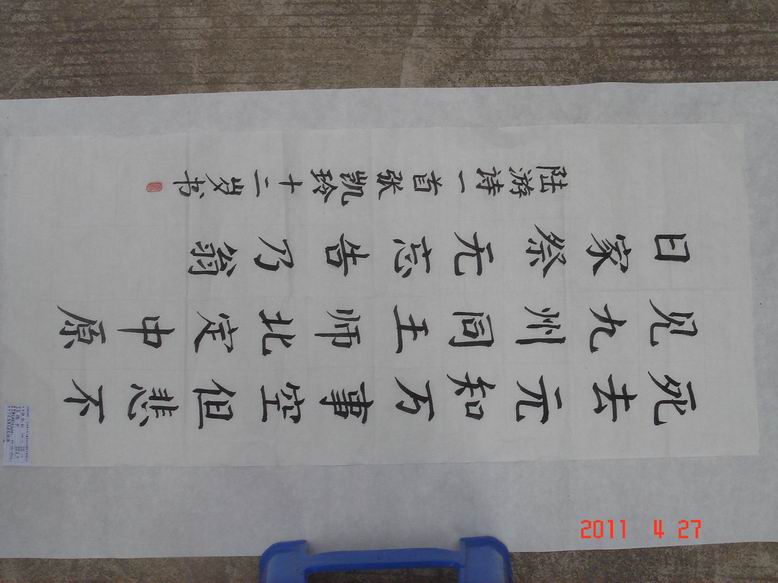 死去元知万事空但悲不
见九州同王师北定中原
日家祭无忘告乃翁
陆游诗一首张凯玲十二岁书
2011 4 27